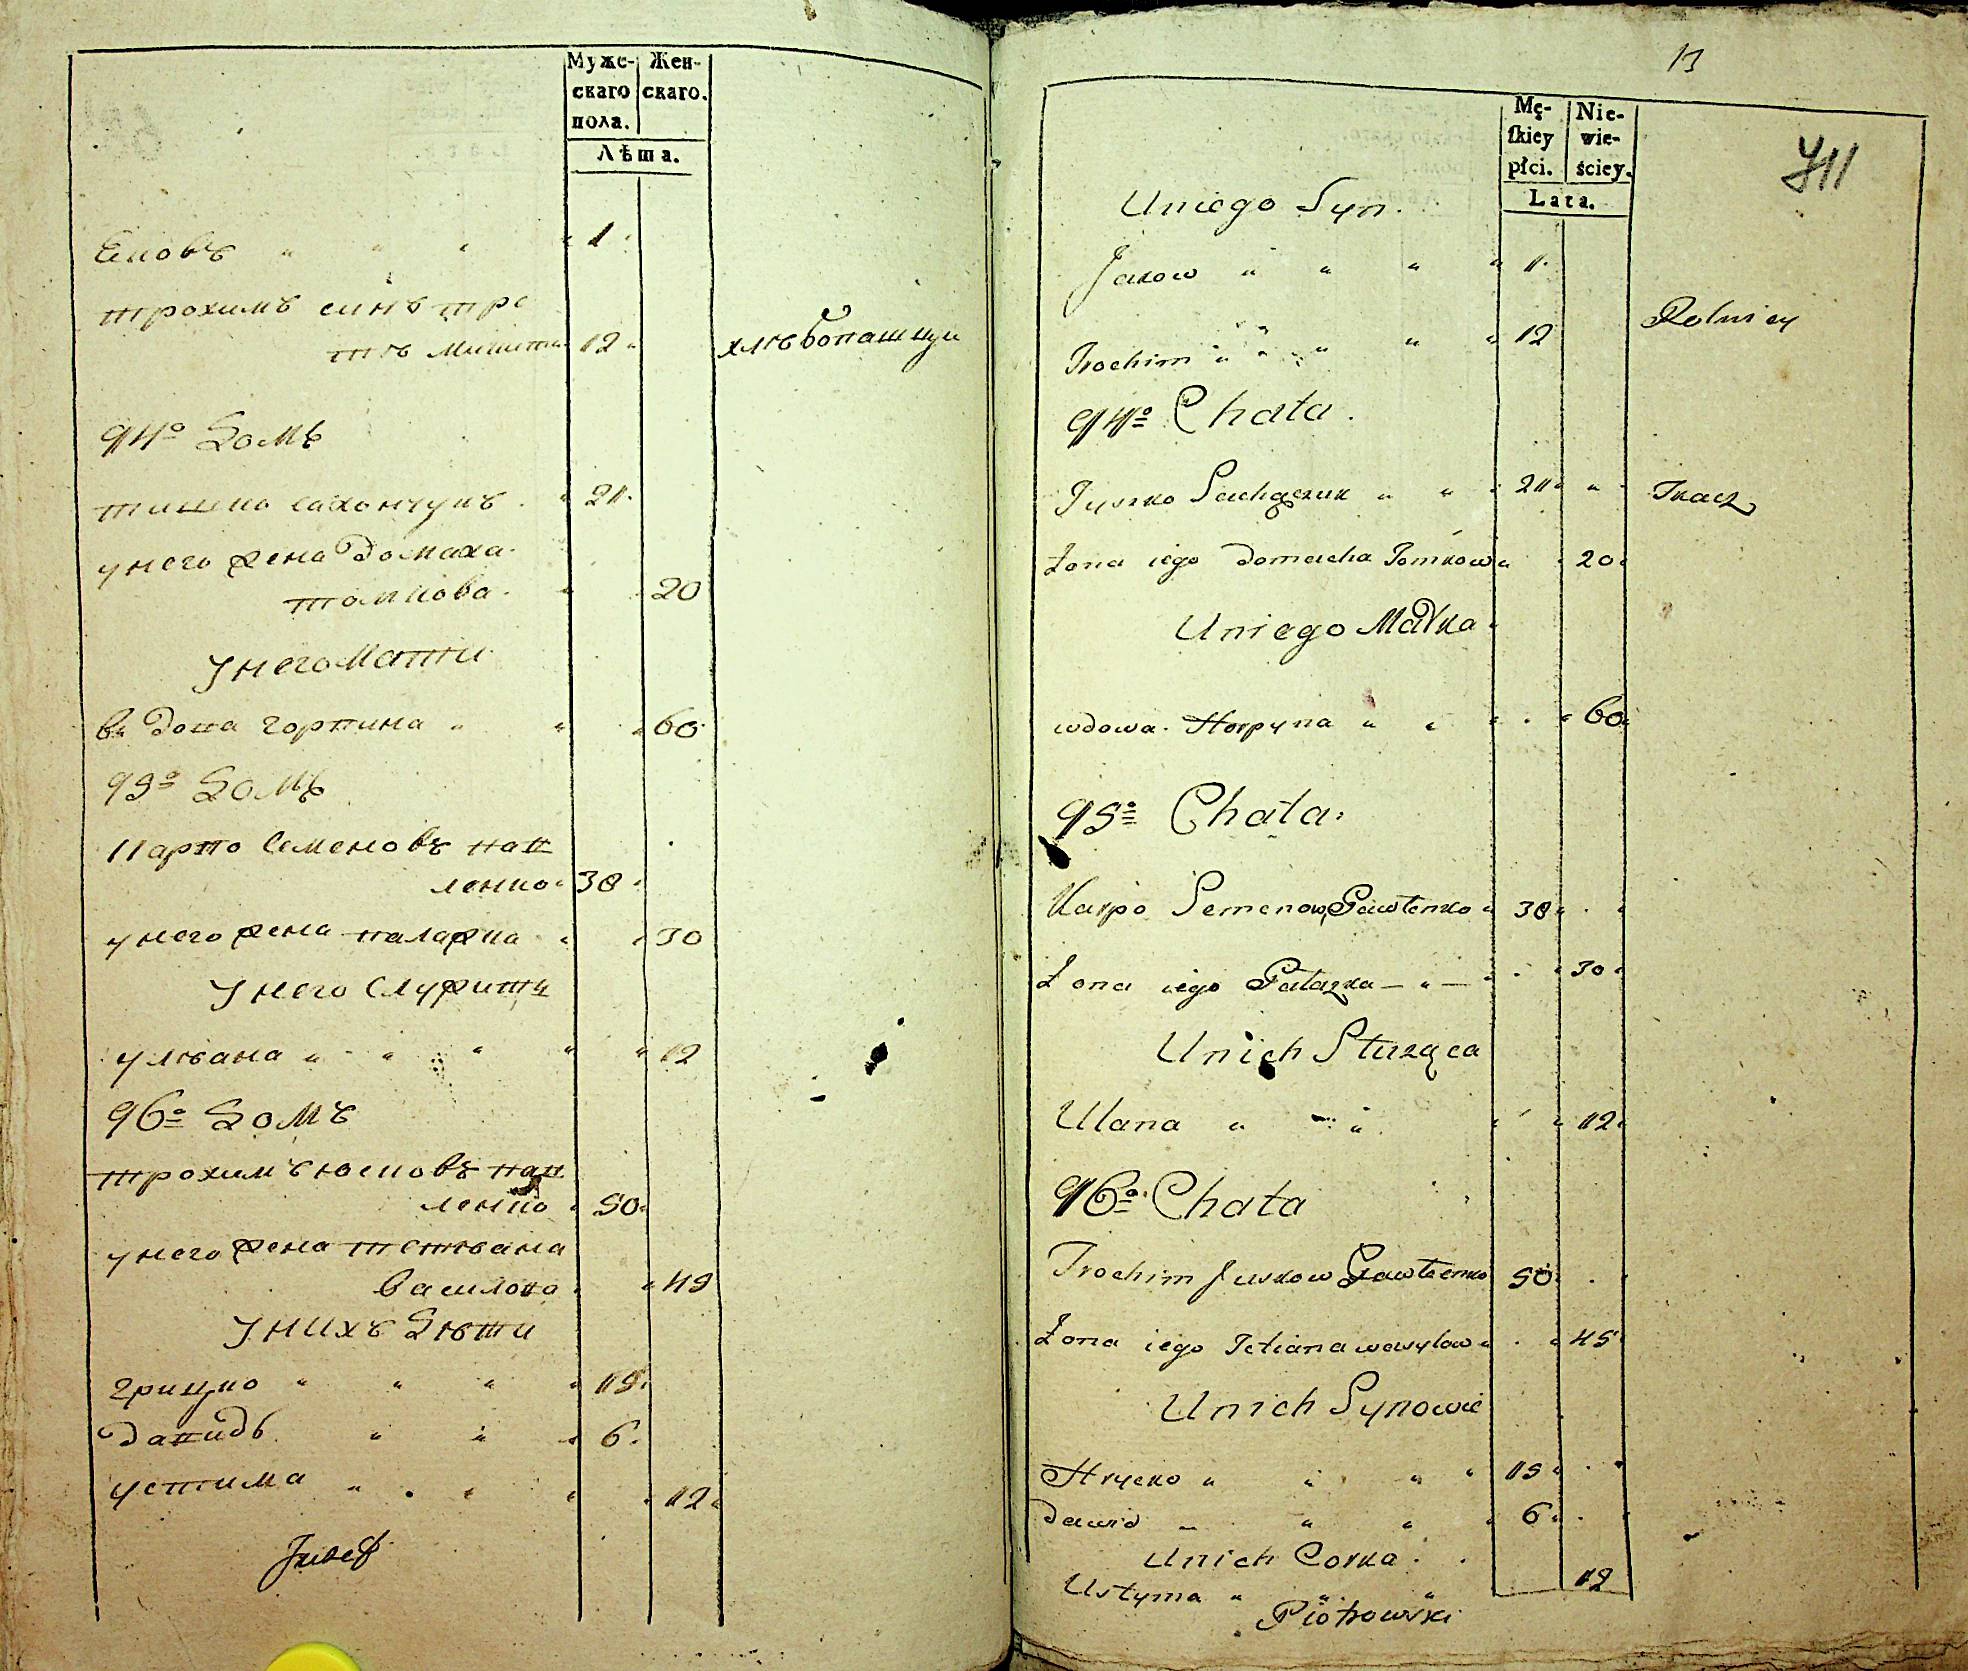 Муже-
скаго
пола.
Жен-
скаго.
Лѣта.
Ековъ " " " " 1
трохимъ синъ тре
12
хлѣбопашци
94º Домъ
тишко сахончукъ " 21
унего жена домаха
томкова " 20
Унего Мати
вдова горпина " " " 60
95º Домъ
Карпо Семеновъ пав
ленко 38
унего жена палажка " " 30
Унего Служити
уляана " " " " " 12
96º Домъ
трохимъ юсковъ пав
ленко 50
унего жена тетяана
Василова " 45
Унихъ Дѣти
грицко " " " " 15
давидъ " " " 6
устима " " " " 12
Józef
13
Mę-
skiey
płci.
Nie-
wie-
ściey.
Lata.
Uniego Syn.
Jakow " " " " 1
Trochim " " " " 12
Rolnicy
94º Chata.
Tyszko Sachączuk " " 21 "
Tkacz
Żona iego Domacha Tomkowa 20
Uniego Matka
wdowa Horpyna " " " " 60
95º Chata.
Karpo Semenow Pawlenko " 38
Żona iego Pałażka — " — 30
Unich Służąca
Ulana " " " " 12
96º Chata
Trochim Juskow Pawlenko 50
Żona iego Tetiana wasylowa 45
Unich Synowie
Hrycko " " " " 15
Dawid " " " " 6
Unich Corka.
Ustyma " " " 12
Piotrowski